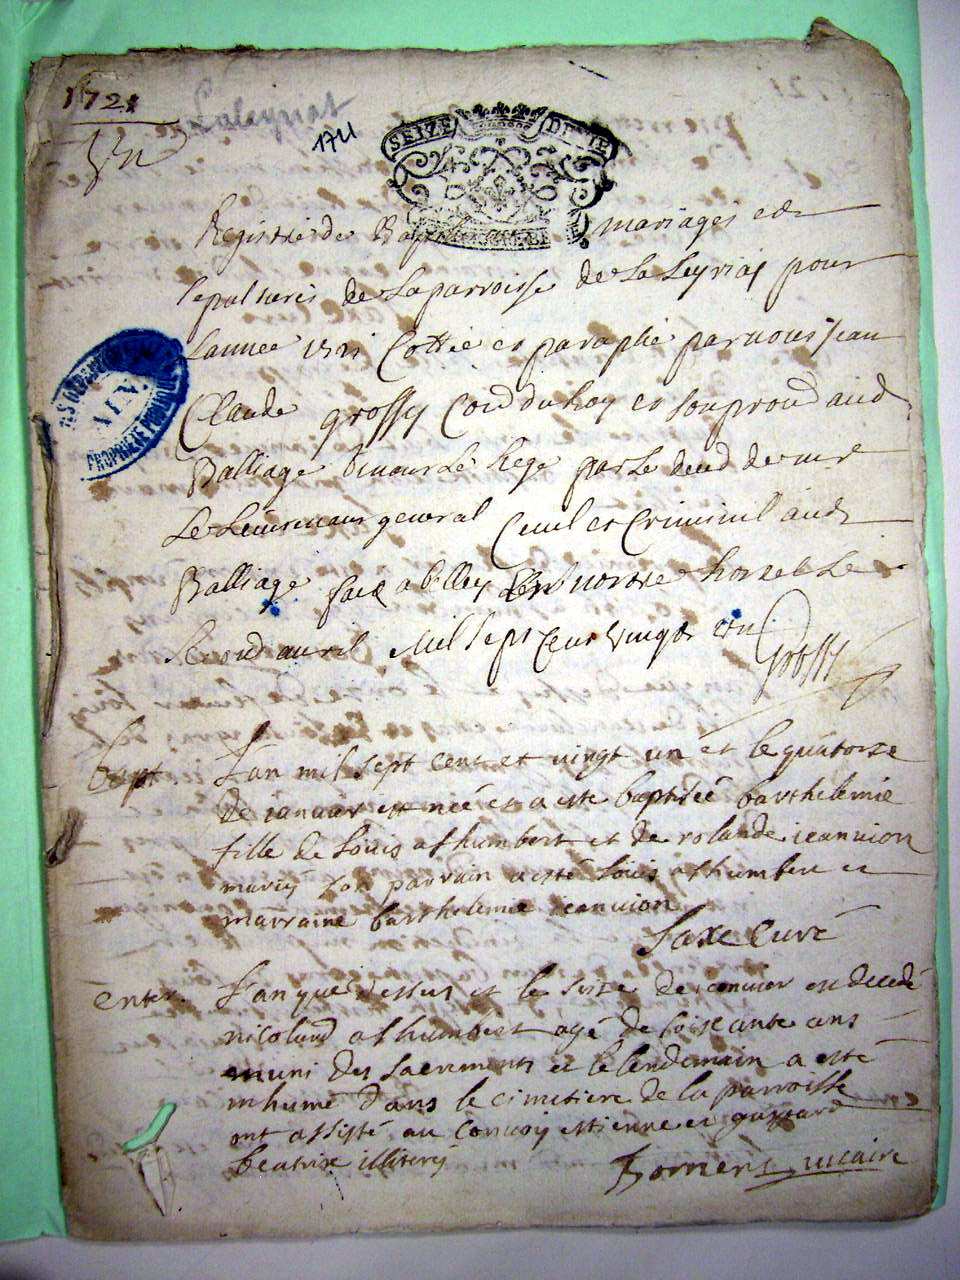 1721
Laleyriat
1721
SEIZE DENIE
Registre de Bap mariages et
sepultures de la parroisse de la Leyriat pour
lannee 1721 Cottée et paraphé par nous Jean
Claude Grossy Cons du Roy et son proc aud
Balliage
le Lieutenant general Civil et Criminel aud
Balliage fait a Belley
second avril mil sept cent vingt et un Grossy
ARCHIVES
AIN
PROPRIETE PUBLIQUE
bapt. L'an mil sept cent et vingt un et le quatorze
de ianvier est née et a esté baptisée barthelemie
fille de Louis alhumbert et de rolande ieanvion
mariez son parrain a esté Louis alhumbert et
marraine barthelemie ieanvion
Saxe Curé
enter. L'an que dessus et le seize de ianvier est decedé
nicoland alhumbert agé de soixante ans
muni des sacrements et le lendemain a esté
inhumé dans le cimetiere de la parroisse
ont assisté au convoy estienne et gaspard
beatrix illiterés
vicaire